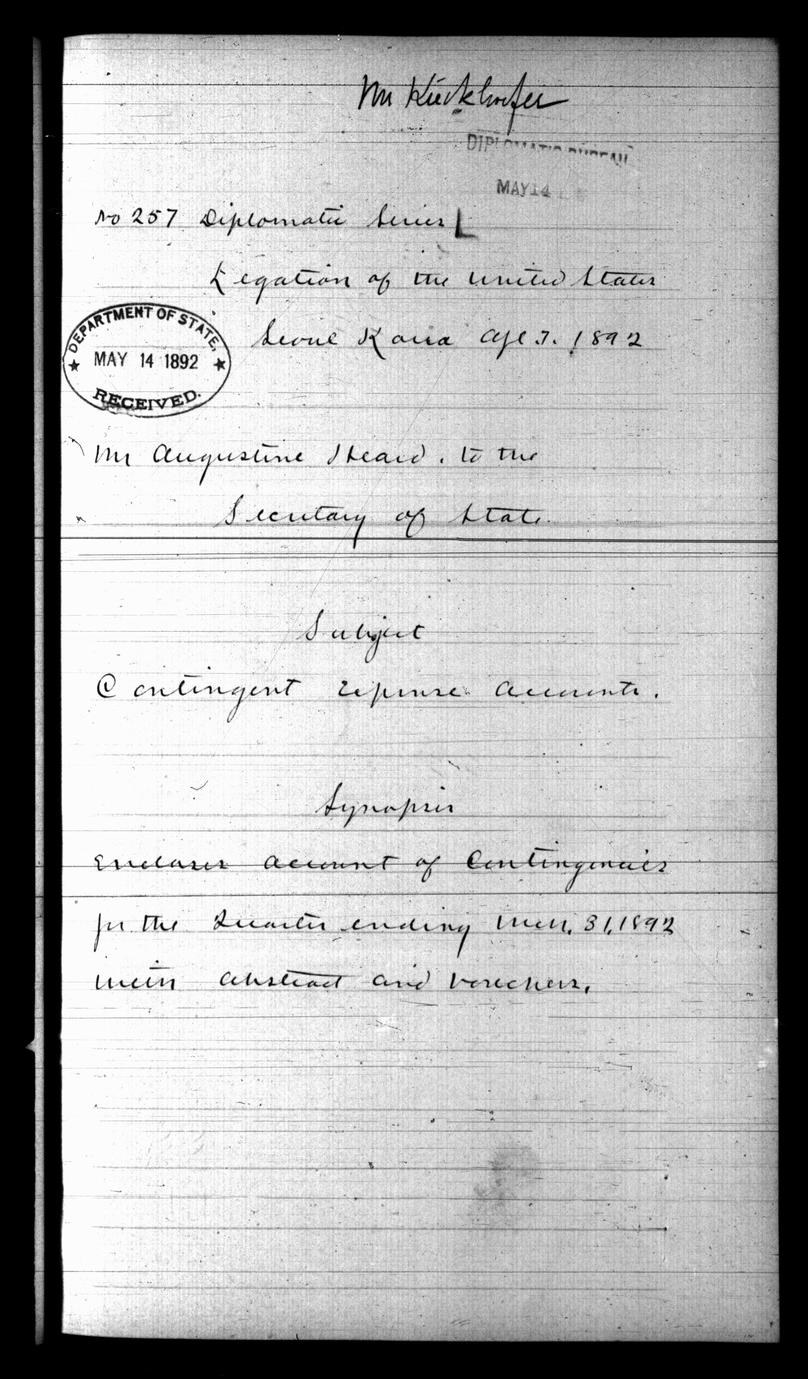 Mr Kieckhoefer
DIPLOMATIC BUREAU
MAY 14
No 257 Diplomatic Series
Legation of the United States
Seoul Korea Apl 7. 1892
DEPARTMENT OF STATE,
MAY 14 1892
RECEIVED.
Mr Augustine Heard. to the
Secretary of State.
Subject
Contingent Expense Accounts.
Synopsis
Encloses account of Contingencies
for the Quarter ending Mch. 31, 1892
with abstract and vouchers.